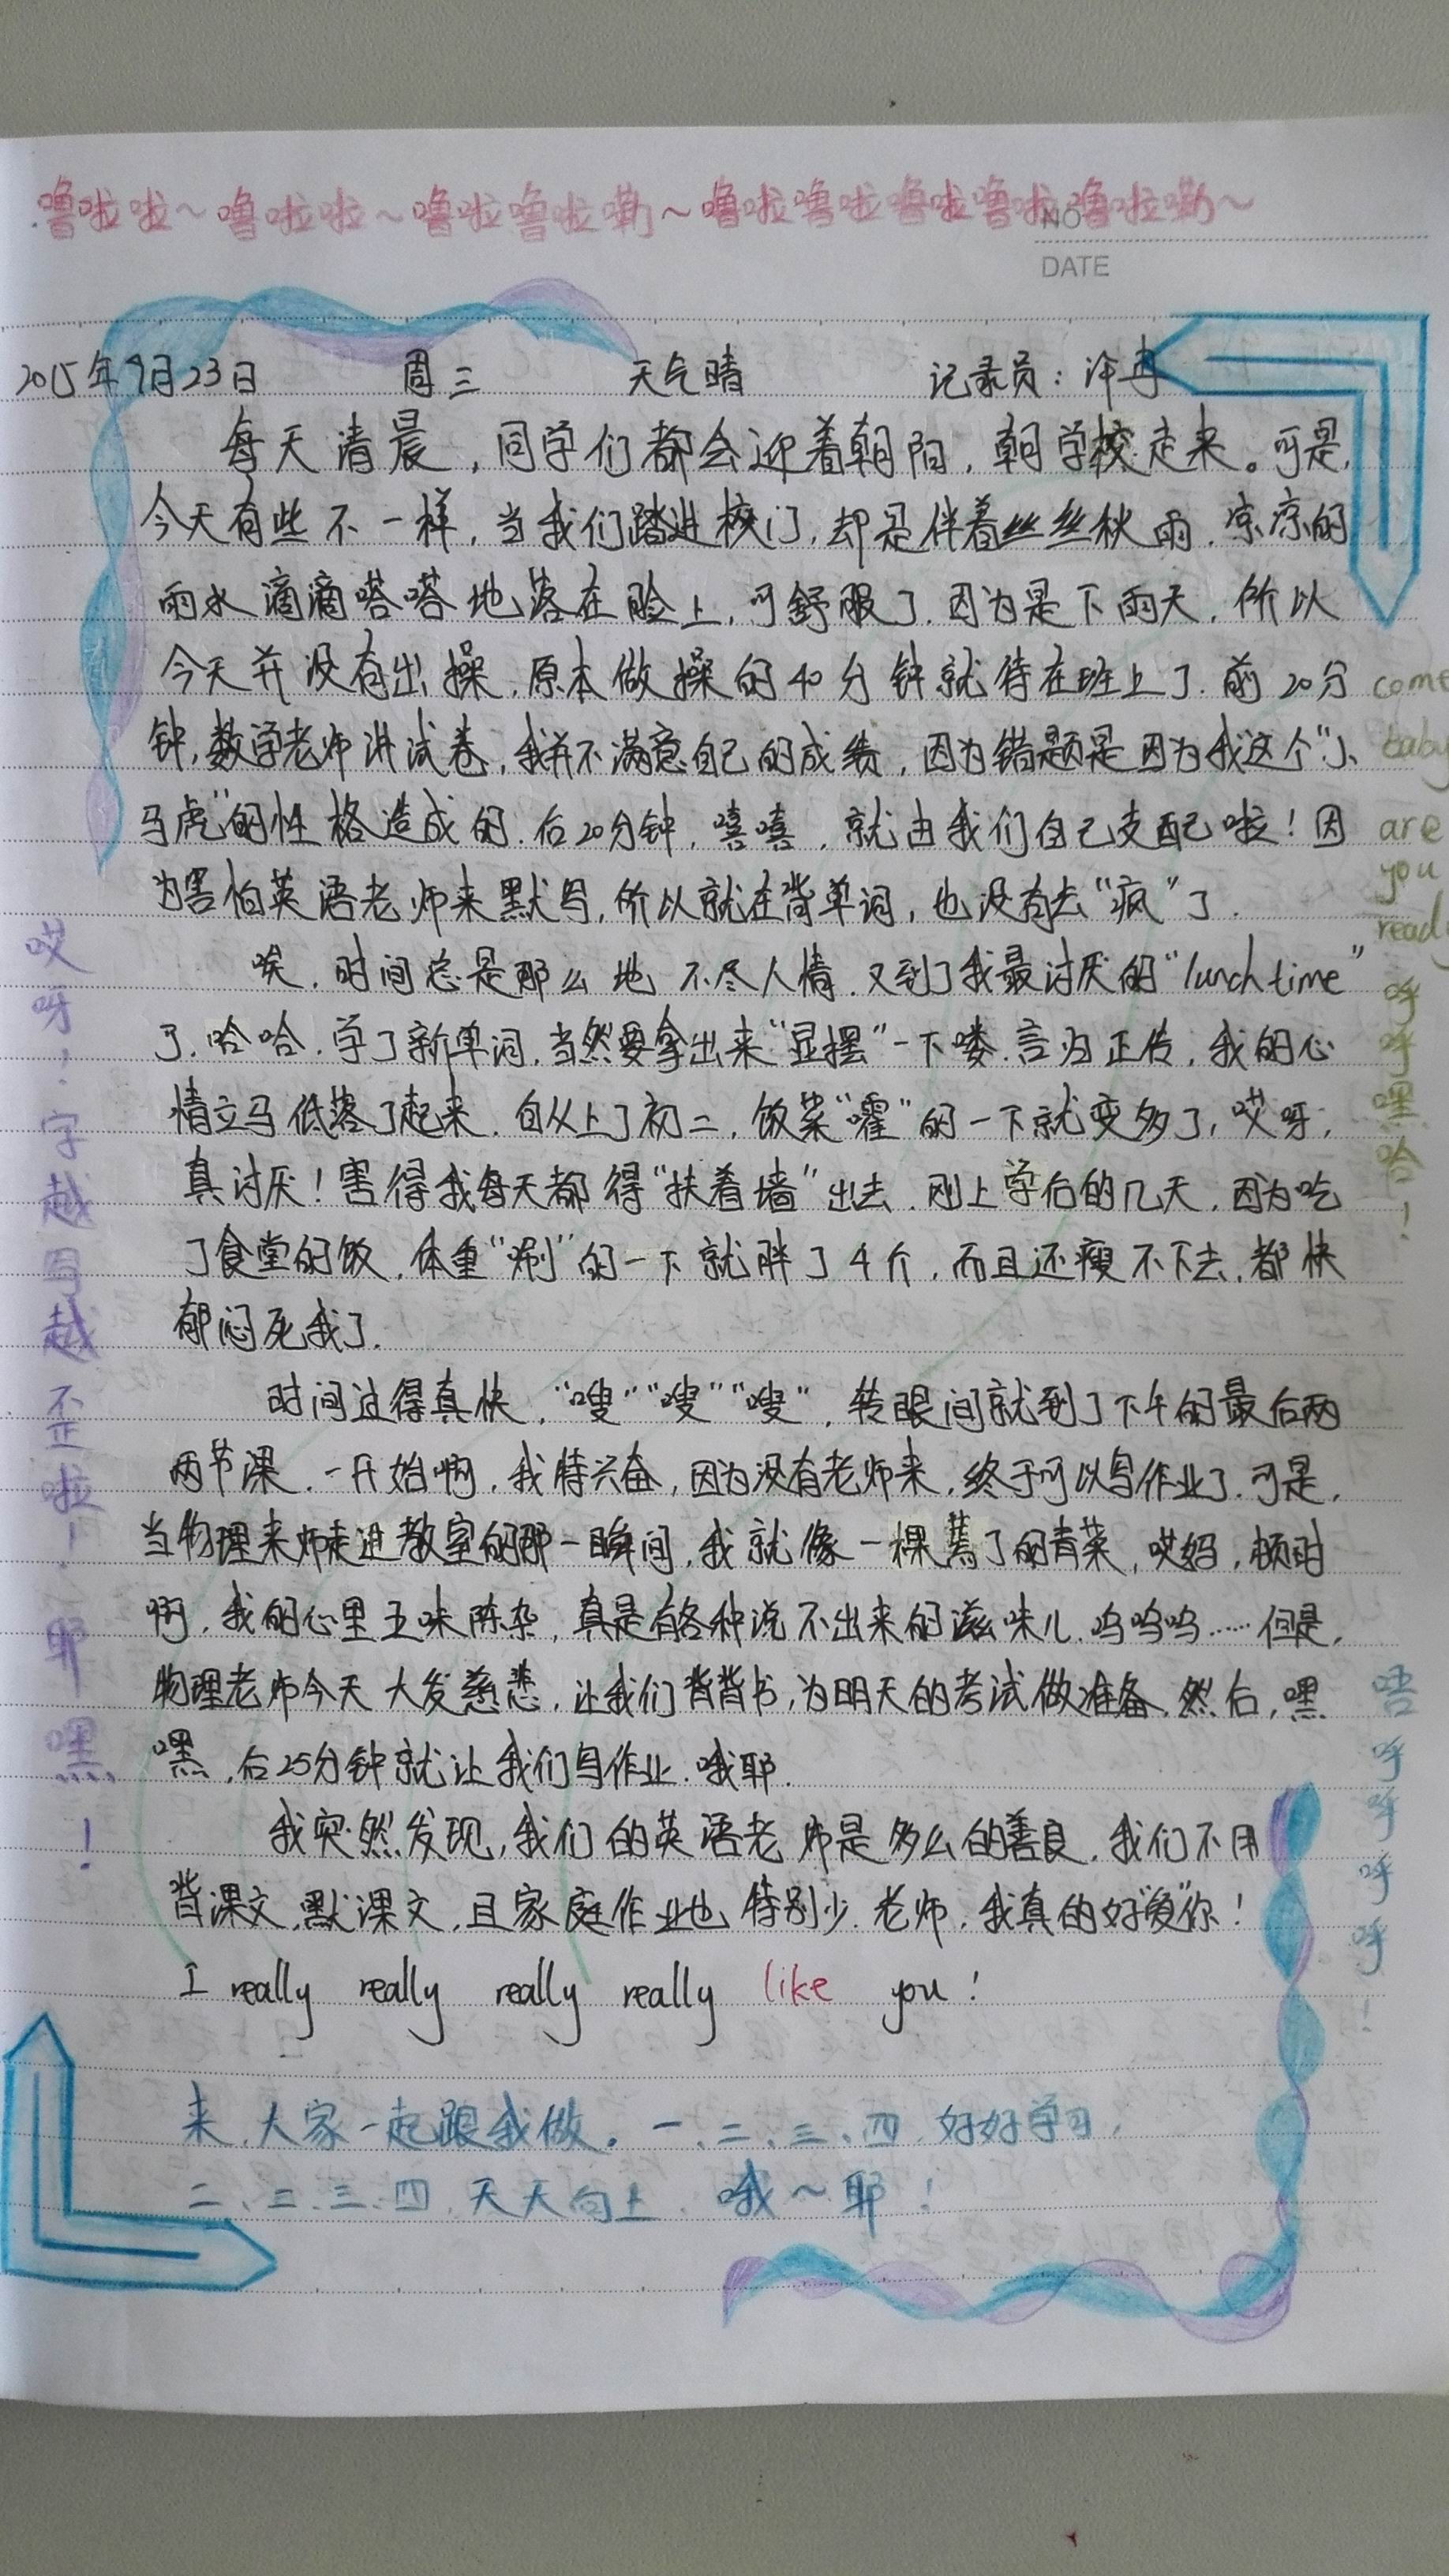 噜啦啦~噜啦啦~噜啦噜啦嘞~噜啦噜啦噜啦噜啦噜啦嘞~
NO
DATE
2015年9月23日 周三 天气晴 记录员：许冉
每天清晨，同学们都会迎着朝阳，朝学校走来。可是，
今天有些不一样，当我们踏进校门，却是伴着丝丝秋雨，凉凉的
雨水滴滴嗒嗒地落在脸上，可舒服了．因为是下雨天，所以
今天并没有出操，原本做操的40分钟就待在班上了．前20分
钟，数学老师讲试卷，我并不满意自己的成绩，因为错题是因为我这个“小
马虎”的性格造成的．后20分钟，嘻嘻，就由我们自己支配啦！因
为害怕英语老师来默写，所以就在背单词，也没有去“疯”了．
唉，时间总是那么地不尽人情．又到了我最讨厌的“lunch time”
了．哈哈．学了新单词，当然要拿出来“显摆”一下喽．言归正传，我的心
情立马低落了起来．自从上了初二，饭菜“嚯”的一下就变多了，哎呀，
真讨厌！害得我每天都得“扶着墙”出去．刚上学后的几天，因为吃
了食堂的饭，体重“唰”的一下就胖了4斤，而且还瘦不下去，都快
郁闷死我了．
时间过得真快，“嗖”“嗖”“嗖”，转眼间就到了下午的最后两
两节课．一开始啊，我特兴奋，因为没有老师来，终于可以写作业了．可是，
当物理来师走进教室的那一瞬间，我就像一棵蔫了的青菜，哎妈，顿时
啊，我的心里五味陈杂，真是有各种说不出来的滋味儿．呜呜呜……但是，
物理老师今天大发慈悲，让我们背背书，为明天的考试做准备．然后，嘿
嘿，后25分钟就让我们写作业．哦耶．
我突然发现，我们的英语老师是多么的善良，我们不用
背课文，默课文，且家庭作业也特别少．老师，我真的好“爱”你！
I really really really really like you！
来，大家一起跟我做。一、二、三、四，好好学习，
二、二、三、四，天天向上．哦~耶！
哎呀！字越写越歪啦！耶嘿！
come
baby
are
you
ready
呼呼嘿哈！
唔呼呼呼呼！